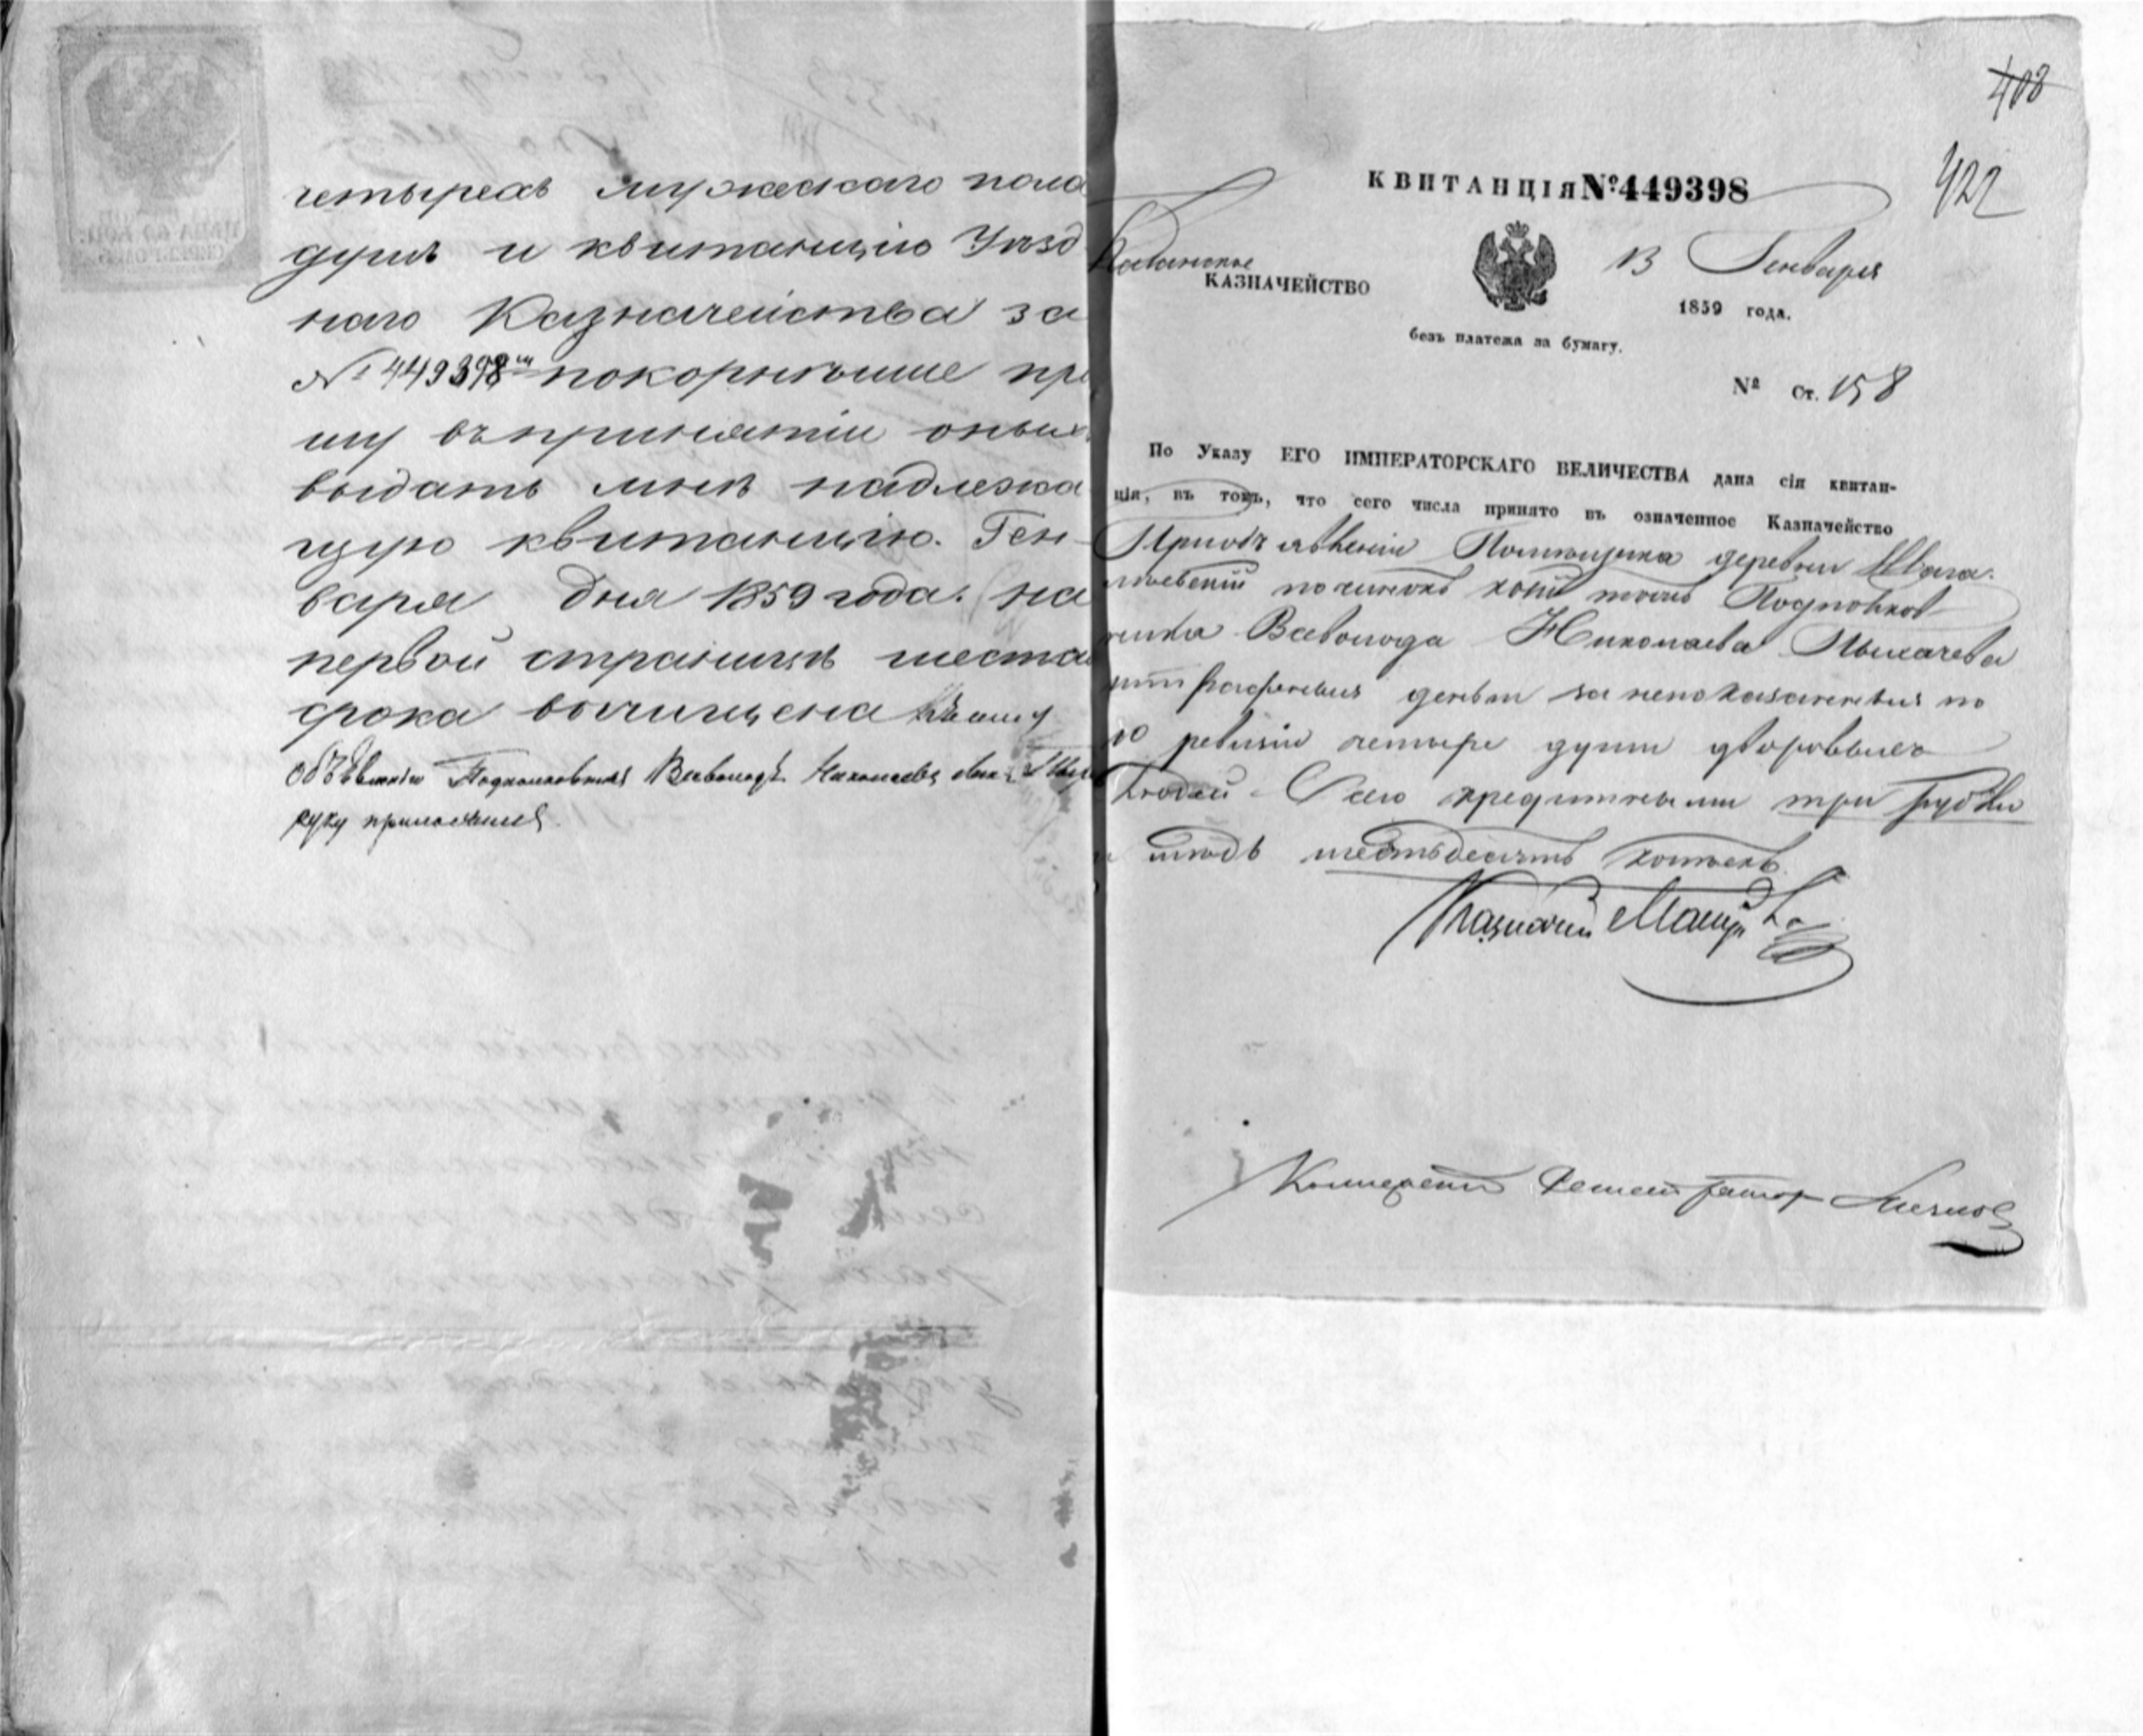 четырехъ мужескаго пола
душъ и квитанцію Уѣзд
наго Казначейства за
№ 449398 покорнѣйше про
шу въ принятіи оныхъ
выдать мнѣ надлежа
щую квитанцію. Ген-
варя дня 1859 года. на
первой страницѣ шеста
строка вычищена Къ сему
объявленію Подполковникъ Всеволодъ Николаевъ сынъ
руку приложилъ.
408
422
КВИТАНЦІЯ №449398
Казанское
КАЗНАЧЕЙСТВО
13 Генваря
1859 года.
безъ платежа за бумагу.
№ Ст. 158
По Указу ЕГО ИМПЕРАТОРСКАГО ВЕЛИЧЕСТВА дана сія квитан-
ція, въ томъ, что сего числа принято въ означенное Казначейство
При объявленіи Помѣщика деревни
починокъ тожъ Подполков
ника Всеволода Николаева Лихачева
штрафныхъ денегъ за непоказанныхъ по
10 ревизіи четыре души дворовыхъ
людей Всего кредитными три рубли
шестьдесятъ копѣекъ.
Казначей
Коллежскій Регистраторъ